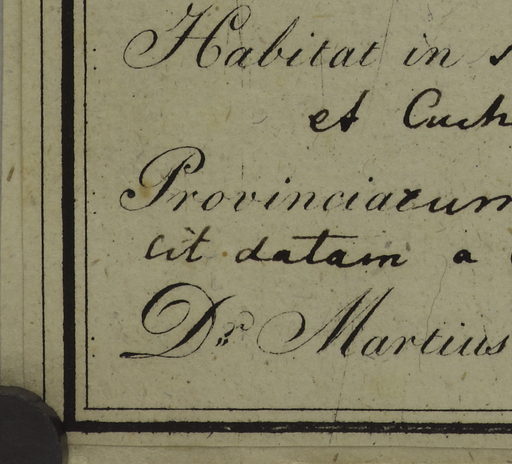 Habitat in s
et Cuch
Provinciarum
cit datam a
Dr. Martius